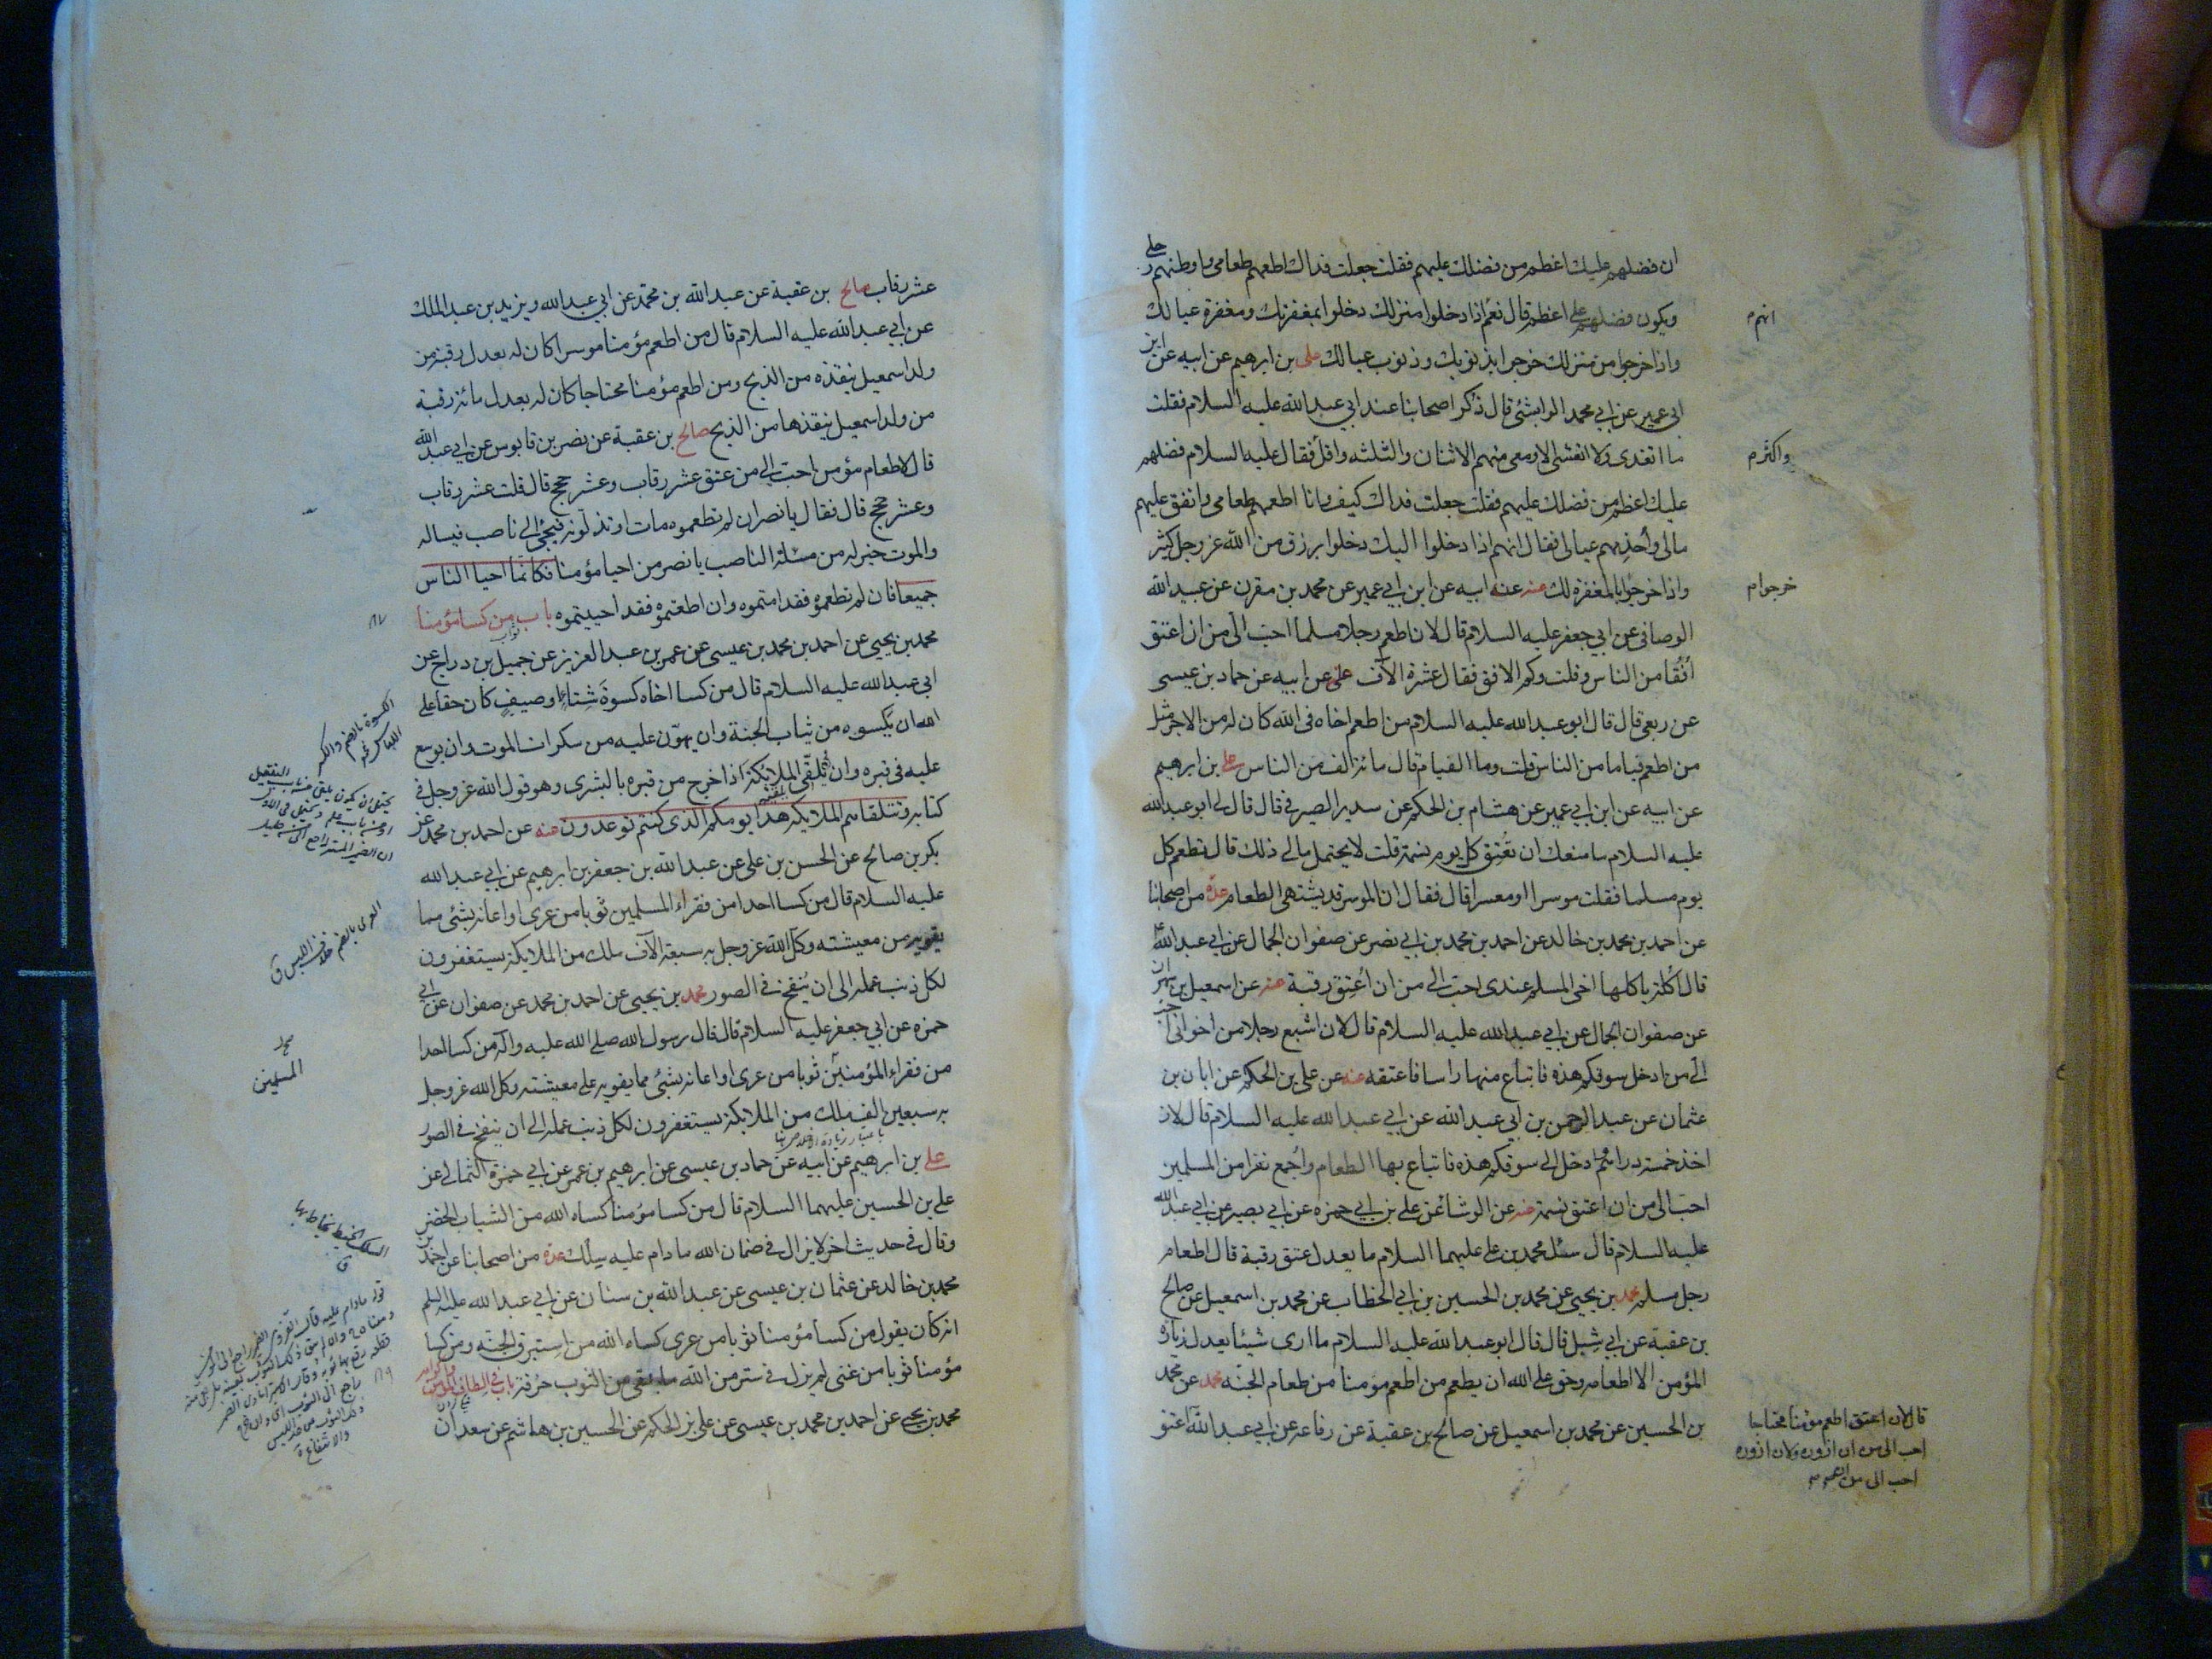 ان فضلهم عليك اعظم من فضلك عليهم فقلت جعلت فداك اطعمهم طعامى واوطئهم رحلى
ويكون فضلهم على اعظم قال نعم اذا دخلوا منزلك دخلوا بمغفرتك ومغفرة عيالك
انهم م
واذا خرجوا من منزلك خرجوا بذنوبك وذنوب عيالك على بن ابرهيم عن ابيه عن ابن
ابى عمير عن ابى محمد الوابشى قال ذكر اصحابنا عند ابى عبد الله عليه السلام فقلت
ما اتغدى ولا اتعشى الا ومعى منهم الاثنان والثلثه واقل فقال عليه السلام فضلهم
واكثر م
عليك اعظم من فضلك عليهم فقلت جعلت فداك كيف وانا اطعمهم طعامى وانفق عليهم
مالى وأخدمهم عيالى فقال انهم اذا دخلوا اليك دخلوا برزق من الله عز وجل كثير
واذا خرجوا بالمغفرة لك عنه عن ابيه عن ابن ابي عمير عن محمد بن مقرن عن عبيد الله
خرجوا م
الوصافى عن ابي جعفر عليه السلام قال لان اطعم رجلا مسلما احب الى من ان اعتق
أفقا من الناس قلت وكم الافق فقال عشرة الآف على عن ابيه عن حماد بن عيسى
عن ربعى قال قال ابو عبد الله عليه السلام من اطعم اخاه فى الله كان له من الاجر مثل
من اطعم فياما من الناس قلت وما الفيام قال مائة الف من الناس على بن ابرهيم
عن ابيه عن ابن ابي عمير عن هشام بن الحكم عن سدير الصيرفى قال قال لى ابو عبد الله
عليه السلام ما منعك ان تعتق كل يوم نسمة قلت لا يحتمل مالى ذلك قال تطعم كل
يوم مسلما فقلت موسرا او معسرا قال فقال ان الموسر قد يشتهى الطعام عدة من اصحابنا
عن احمد بن محمد بن خالد عن احمد بن محمد بن ابي نصر عن صفوان الجمال عن ابي عبد الله
قال اكلة ياكلها اخى المسلم عندى احب الى من ان اعتق رقبة عنه عن اسمعيل بن مهران
عن صفوان الجمال عن ابي عبد الله عليه السلام قال لان اشبع رجلا من اخوانى احب
الى من ادخل سوقكم هذه فابتاع منها راسا فاعتقه عنه عن على بن الحكم عن ابان بن
عثمان عن عبد الرحمن بن ابي عبد الله عن ابي عبد الله عليه السلام قال لان
اخذ خمسة دراهم ادخل الى سوقكم هذه فابتاع بها الطعام واجمع نفرا من المسلمين
احب الى من ان اعتق نسمة عنه عن الوشا عن على بن ابي حمزه عن ابي بصير عن ابي عبد الله
عليه السلام قال سئل محمد بن على عليهما السلام ما يعدل عتق رقبة قال اطعام
رجل مسلم محمد بن يحيى عن محمد بن الحسين بن ابي الخطاب عن محمد بن اسمعيل عن صالح
بن عقبة عن ابي شبل قال قال ابو عبد الله عليه السلام ما ارى شيئا يعدل زيارة
المؤمن الا اطعامه وحق على الله ان يطعم من اطعم مومنا من طعام الجنة محمد عن محمد
بن الحسين عن محمد بن اسمعيل عن صالح بن عقبة عن رفاعه عن ابي عبد الله اعتق
قال لان اعتق اطعم مؤمنا محتاجا
احب الى من ان ازوره ولان ازوره
احب الى من
عشر رقاب صالح بن عقبة عن عبد الله بن محمد عن ابي عبد الله ويزيد بن عبد الملك
عن ابي عبد الله عليه السلام قال من اطعم مؤمنا موسرا كان له يعدل رقبة من
ولد اسمعيل ينقذه من الذبح ومن اطعم مؤمنا محتاجا كان له يعدل مائة رقبة
من ولد اسمعيل ينقذها من الذبح صالح بن عقبة عن نصر بن قابوس عن ابي عبد الله
قال لاطعام مؤمن احب الى من عتق عشر رقاب وعشر حجج قال قلت عشر رقاب
وعشر حجج قال فقال يا نصر ان لم تطعموه مات او تذلونه فيجئ الى ناصب فيساله
والموت خير له من مسئلة الناصب يا نصر من احيا مؤمنا فكانما احيا الناس
جميعا فان لم تطعموه فقد امتموه وان اطعمتموه فقد احييتموه باب من كسا مؤمنا
محمد بن يحيى عن احمد بن محمد بن عيسى عن عمر بن عبد العزيز عن جميل بن دراج عن
ابي عبد الله عليه السلام قال من كسا اخاه كسوة شتاء او صيف كان حقا على
الله ان يكسوه من ثياب الجنة وان يهون عليه من سكرات الموت وان يوسع
عليه فى قبره وان تلقى الملايكة اذا خرج من قبره بالبشرى وهو قول الله عز وجل فى
كتابه وتتلقاهم الملايكه هذا يومكم الذى كنتم توعدون عنه عن احمد بن محمد عن
بكر بن صالح عن الحسن بن على عن عبد الله بن جعفر بن ابرهيم عن ابي عبد الله
عليه السلام قال من كسا احدا من فقراء المسلمين ثوبا من عرى او اعانه بشئ مما
يقويه من معيشته وكل الله عز وجل به سبعة الآف ملك من الملايكة يستغفرون
لكل ذنب عمله الى ان ينفخ فى الصور محمد بن يحيى عن احمد بن محمد عن صفوان عن ابي
حمزه عن ابي جعفر عليه السلام قال قال رسول الله صلى الله عليه واله من كسا احدا
من فقراء المؤمنين ثوبا من عرى او اعانه بشئ مما يقويه على معيشته وكل الله عز وجل
المسلمين
به سبعين الف ملك من الملايكة يستغفرون لكل ذنب عمله الى ان ينفخ فى الصور
على بن ابرهيم عن ابيه عن حماد بن عيسى عن ابرهيم بن عمر عن ابي حمزة الثمالى عن
على بن الحسين عليهما السلام قال من كسا مؤمنا كساه الله من الثياب الخضر
وقال فى حديث اخر لا يزال فى ضمان الله ما دام عليه سلك عدة من اصحابنا عن احمد بن
محمد بن خالد عن عثمان بن عيسى عن عبد الله بن سنان عن ابي عبد الله عليه السلم
انه كان يقول من كسا مؤمنا ثوبا من عرى كساه الله من استبرق الجنة ومن كسا
مؤمنا ثوبا من غنى لم يزل فى ستر من الله ما بقى من الثوب خرقة باب فى الطاف المؤمن واكرامه
محمد بن يحيى عن احمد بن محمد بن عيسى عن على بن الحكم عن الحسين بن هاشم عن سعدان
الكسوة بالضم والكسر
اللباس
العرى بالضم خلاف اللبس ق
السلك الخيط يخاط بها
ق